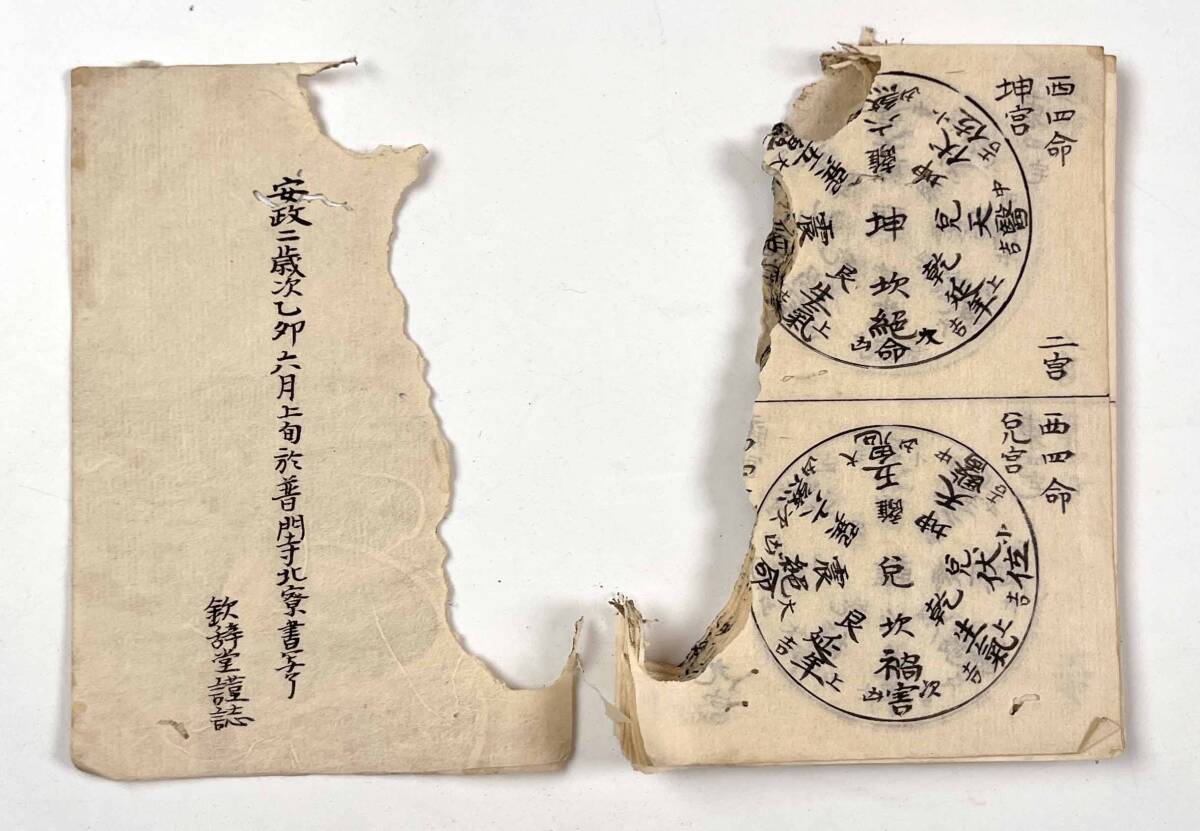 西四命
坤宮
二宮
坤
離 六煞 凶
坤 伏位 小吉
兌 天醫 中吉
乾 延年 上吉
坎 絕命 次凶
艮 生氣 上吉
震
巽 五鬼 大
西四命
兌宮
兌
離 五鬼 大凶
坤 天醫 中吉
兌 伏位 小吉
乾 生氣 上吉
坎 禍害 次凶
艮 延年 上吉
震 絕命 大凶
巽 六煞 凶
安政二歳次乙卯六月上旬於普門寺北寮書写了
欽堂謹誌